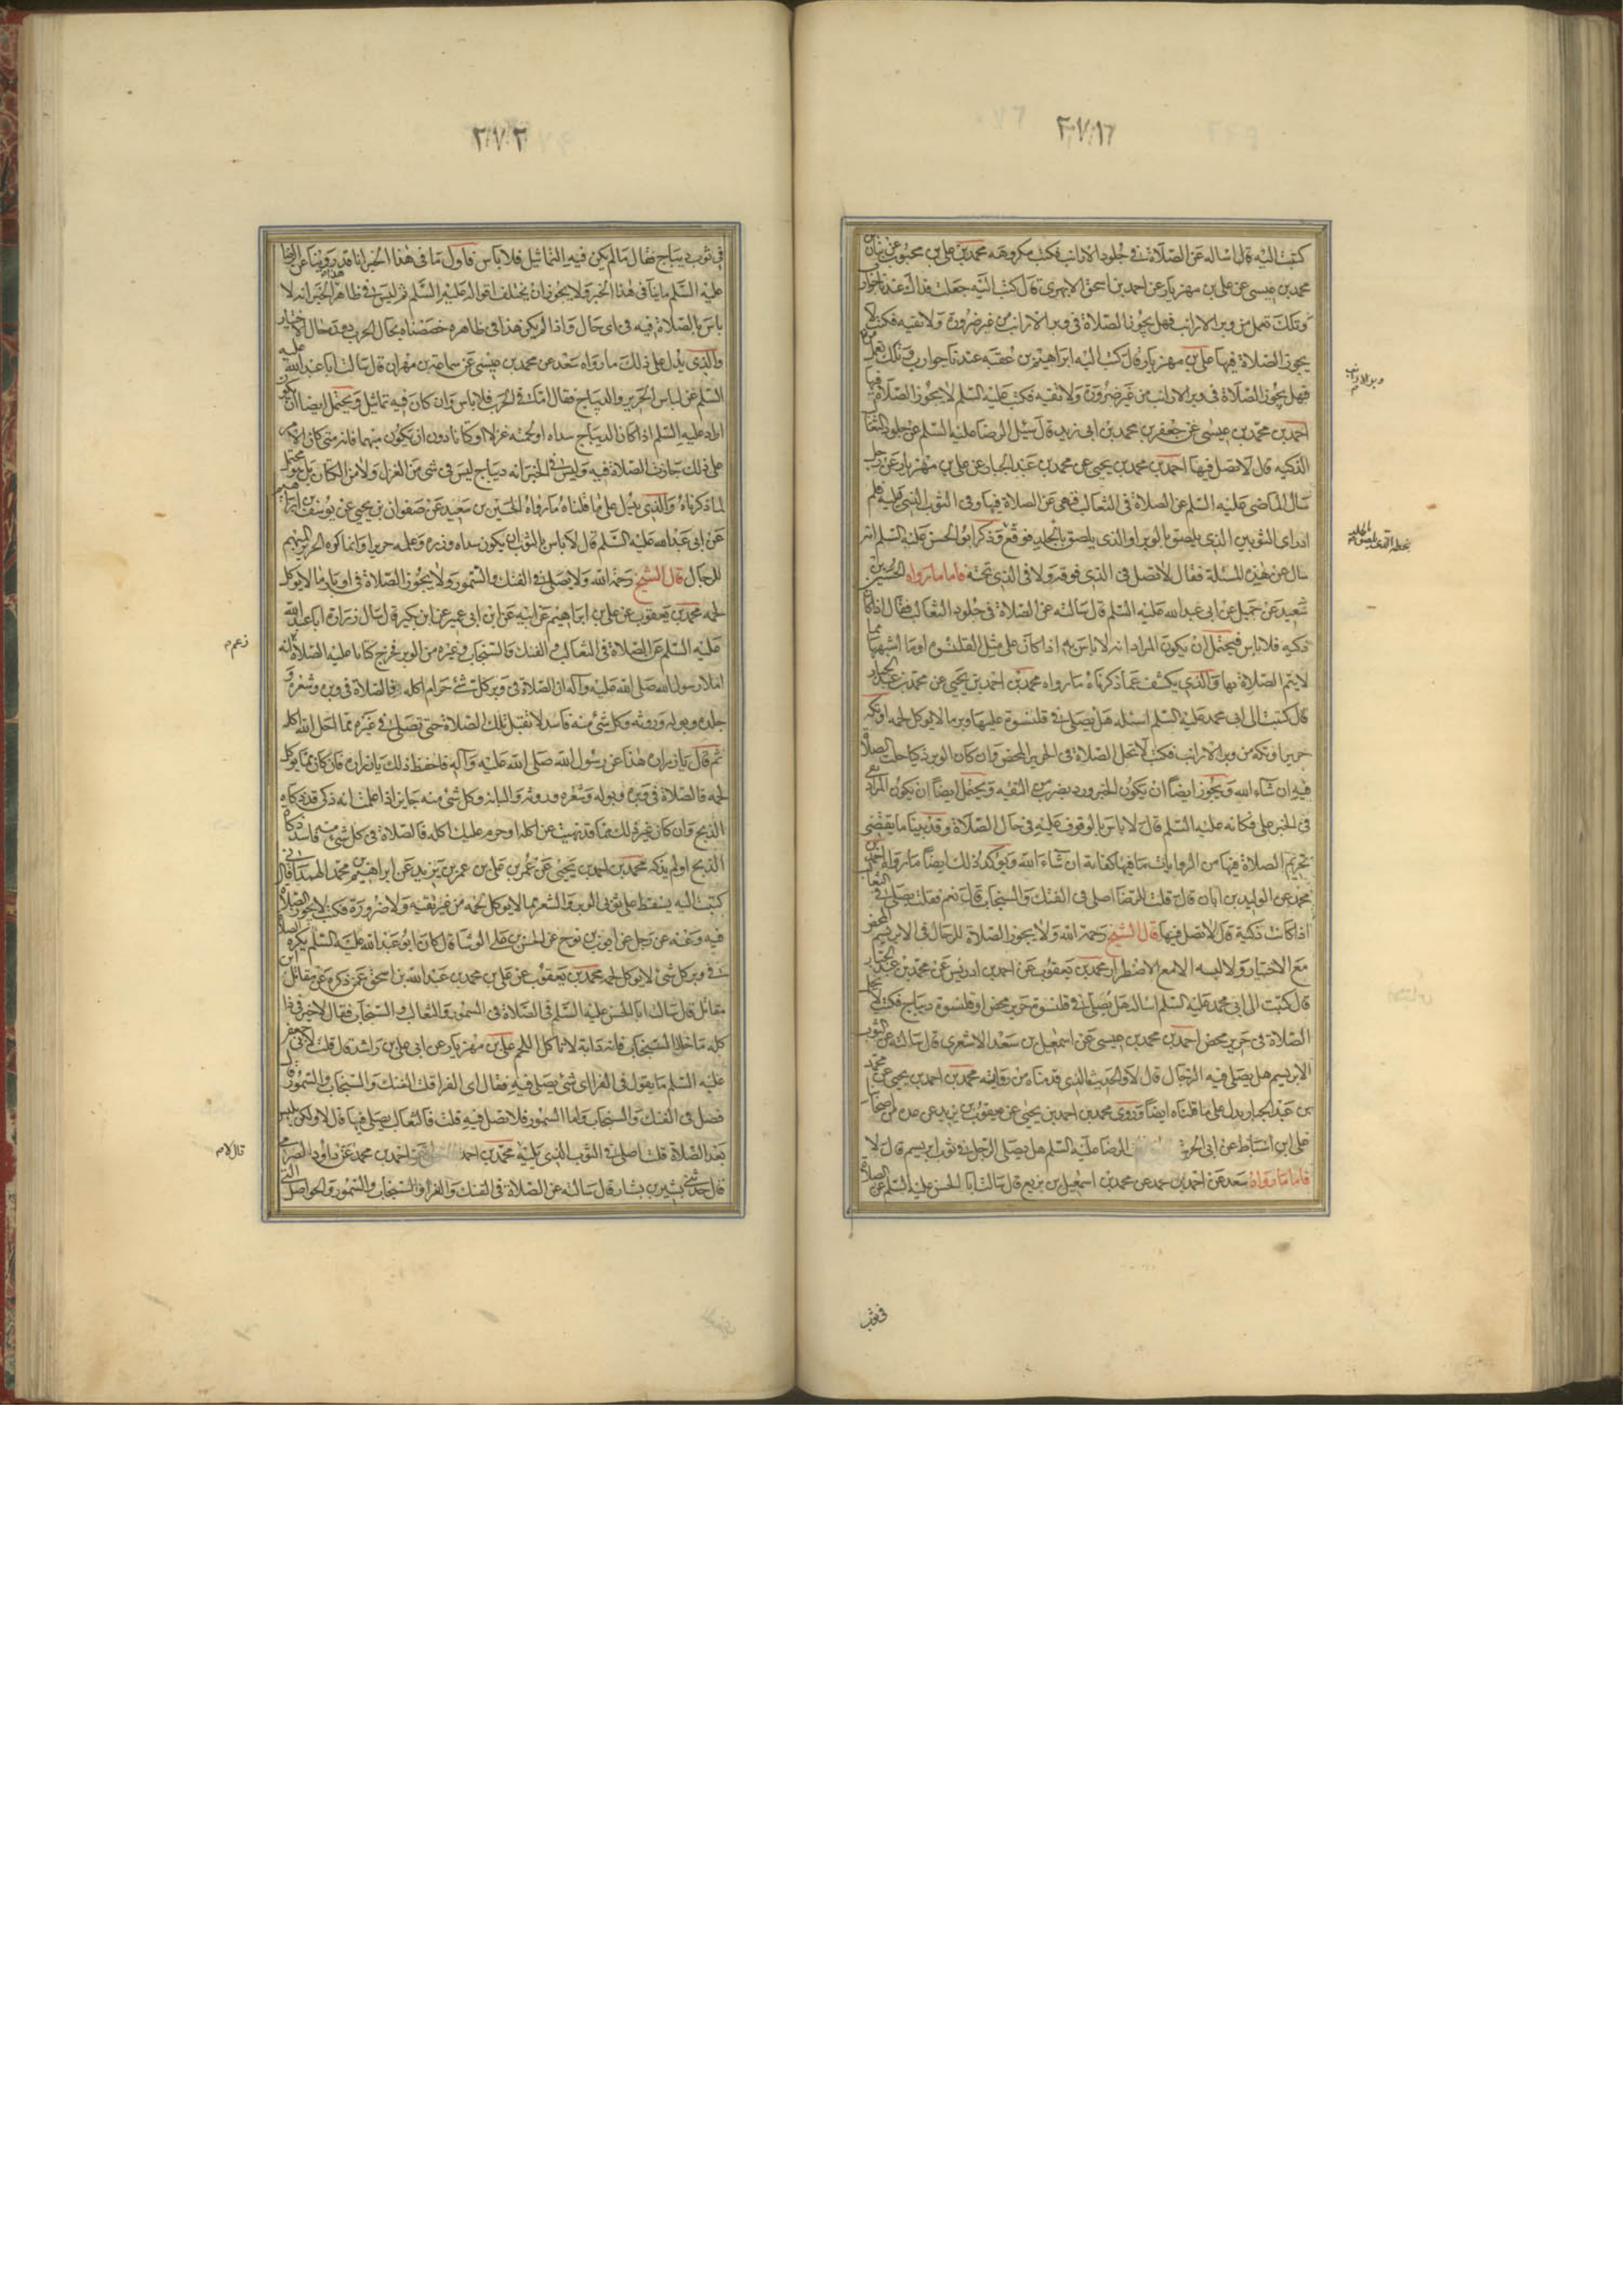 كتبت اليه قال اساله عن الصلاة في جلود الارانب فكتب مكروهه محمد بن علي بن محبوب عن بنان بن
محمد بن عيسى عن علي بن مهزيار عن احمد بن اسحق الابهرى قال كتبت اليه جعلت فداك عندنا جوارب
وتكك تعمل من وبر الارانب فهل يجوز الصلاة في وبر الارانب من غير ضرورة ولا تقيه فكتب لا
يجوز الصلاة فيها علي بن مهزيار قال كتب اليه ابراهيم بن عقبه عندنا جوارب وتكك تعمل من
وبر الارانب
فهل يجوز الصلاة في وبر الارانب من غير ضرورة ولا تقيه فكتب عليه السلم لا يجوز الصلاة فيها
احمد بن محمد بن عيسى عن جعفر بن محمد بن ابى زيد قال سئل الرضا عليه السلم عن جلود الثعالب
الذكيه قال لا تصل فيها احمد بن محمد بن يحيى عن محمد بن عبد الجبار عن علي بن مهزيار عن رجل
سال الماضى عليه السلم عن الصلاة في الثعالب فنهى عن الصلاة فيها وفى الثوب الذى يليه فلم
ادر اى الثوبين الذى يلصق بالوبر او الذى يلصق بالجلد فوقع وذكر ابو الحسن عليه السلم انه
سال عن هذه المسئلة فقال لا تصل فى الذى فوقه ولا فى الذى تحته فاما ما رواه الحسين بن
سعيد عن جميل عن ابى عبد الله عليه السلم قال سالته عن الصلاة فى جلود الثعالب فقال اذا كانت
ذكيه فلا باس فيحتمل ان يكون المراد انه لا باس به اذا كان على مثل القلنسوه او ما اشبهها مما
لا يتم الصلاة بها والذى يكشف عما ذكرناه ما رواه محمد بن احمد بن يحيى عن محمد بن عبد الجبار
قال كتبت الى ابى محمد عليه السلم اسئله هل يصلى فى قلنسوة عليها وبر ما لا يوكل لحمه او تكه
حرير او تكه من وبر الارانب فكتب لا تحل الصلاة فى الحرير المحض وان كان الوبر ذكيا حلت الصلاة
فيه ان شاء الله ويجوز ايضا ان يكون الخبر ورد بضرب من التقيه ويحتمل ايضا ان يكون المراد بفى
فى الخبر على فكانه عليه السلم قال لا باس بالوقوف عليه فى حال الصلاة وقد بينا ما يقتضى
تحريم الصلاة فيها من الروايات بما فيها كفاية ان شاء الله ويوكد ذلك ايضا ما رواه احمد بن
محمد عن الوليد بن ابان قال قلت للرضا اصلى فى الفنك والسنجاب قال نعم فقلت يصلى فى الثعالب
اذا كانت ذكية قال لا تصل فيها قال الشيخ رحمه الله ولا يجوز الصلاة للرجال فى الابريسم المحض
مع الاختيار ولا لبسه الا مع الاضطرار محمد بن يعقوب عن احمد بن ادريس عن محمد بن عبد الجبار
قال كتبت الى ابى محمد عليه السلم اساله هل يصلى فى قلنسوة حرير محض او قلنسوة ديباج فكتب لا تحل
الصلاة فى حرير محض احمد بن محمد بن عيسى عن اسمعيل بن سعد الاشعرى قال سالته عن الثوب
الابريسم هل يصلى فيه الرجال قال لا والحديث الذى قدمناه من رواية محمد بن احمد بن يحيى عن محمد
بن عبد الجبار يدل على ما قلناه ايضا وروى محمد بن احمد بن يحيى عن يعقوب بن يزيد عن عدة من اصحابنا
على ابن اسباط عن ابى الحرث الرضا عليه السلم هل يصلى الرجل فى ثوب ابريسم قال لا
فاما ما رواه سعد عن احمد بن محمد عن محمد بن اسمعيل بن بزيع قال سالت ابا الحسن عليه السلم عن الصلاة
فى ثوب
٣٠٧٠٣
فى ثوب ديباج فقال ما لم يكن فيه التماثيل فلا باس فاول ما فى هذا الخبر انا قد روينا عن الرضا
عليه السلم ما ينافى هذا الخبر ولا يجوز ان يختلف اقواله عليه السلم ثم ليس فى ظاهر هذا الخبر انه لا
باس بالصلاة فيه فى اى حال واذا لم يكن هذا فى ظاهره خصصناه بحال الحرب دون حال الاختيار
والذى يدل على ذلك ما رواه سعد عن محمد بن عيسى عن سماعة بن مهران قال سالت ابا عبد الله عليه
السلم عن لباس الحرير والديباج فقال اما فى الحرب فلا باس وان كان فيه تماثيل ويحتمل ايضا ان يكون
اراد عليه السلم اذا كان الديباج سداه او لحمته غزلا او كتانا دون ان تكون مبهما فانه متى كان الامر
على ذلك جازت الصلاة فيه وليس فى الخبر انه ديباج ليس فى شى من الغزل ولا من الكتان بل هو محتمل
لما ذكرناه والذى يدل على ما قلناه ما رواه الحسين بن سعيد عن صفوان بن يحيى عن يوسف بن ابراهيم
عن ابى عبد الله عليه السلم قال لا باس بالثوب ان يكون سداه وزره وعلمه حريرا وانما كره الحرير المبهم
للرجال قال الشيخ رحمه الله ولا يصلى فى الفنك والسمور ولا يجوز الصلاة فى اوبار ما لا يوكل
لحمه محمد بن يعقوب عن على بن ابراهيم عن ابيه عن ابن ابى عمير عن ابن بكير قال سال زرارة ابا عبد الله
عليه السلم عن الصلاة فى الثعالب والفنك والسنجاب وغيره من الوبر فاخرج كتابا عليه الصلاة انه
زعم م
املاء رسول الله صلى الله عليه وآله ان الصلاة فى وبر كل شئ حرام اكله فالصلاة فى وبره وشعره و
جلده وبوله وروثه وكل شئ منه فاسد لا تقبل تلك الصلاة حتى تصلى فى غيره مما احل الله اكله
ثم قال يا زرارة هذا عن رسول الله صلى الله عليه وآله فاحفظ ذلك يا زراره فان كان مما يوكل
لحمه فالصلاة فى وبره وبوله وشعره وروثه والبانه وكل شئ منه جايز اذا علمت انه ذكى قد ذكاه
الذبح وان كان غير ذلك مما قد نهيت عن اكله او حرم عليك اكله فالصلاة فى كل شئ منه فاسد ذكاه
الذبح او لم يذكه محمد بن احمد بن يحيى عن عمر بن على بن عمر بن يزيد عن ابراهيم بن محمد الهمدانى قال
كتبت اليه يسقط على ثوبى الوبر والشعر مما لا يوكل لحمه من غير تقيه ولا ضرورة فكتب لا يجوز الصلاة
فيه وعنه عن رجل عن ايوب بن نوح عن الحسن بن على الوشا قال كان ابو عبد الله عليه السلم يكره الصلاة
فى وبر كل شئ لا يوكل لحمه محمد بن يعقوب عن على بن محمد بن عبد الله بن اسحق عمن ذكره عن مقاتل بن
مقاتل قال سالت ابا الحسن عليه السلم فى الصلاة فى السمور والثعالب والسنجاب فقال لا خير فى ذا
كله ما خلا السنجاب فانه دابة لا تاكل اللحم على بن مهزيار عن ابى على بن راشد قال قلت لابى جعفر
عليه السلم ما يقول فى الفرا اى شئ يصلى فيه فقال اى الفرا قلت الفنك والسنجاب والسمور قال
فصل فى الفنك والسنجاب واما السمور فلا تصل فيه قلت فالثعالب يصلى فيها قال لا ولكن تلبس
بعد الصلاة قلت اصلى فى الثوب الذى يليه محمد بن احمد احمد بن محمد عن داود الصرمى
قال لا م
قال حدثنى بشير بن بشار قال سالته عن الصلاة فى الفنك والفرا والسنجاب والسمور والحواصل التى